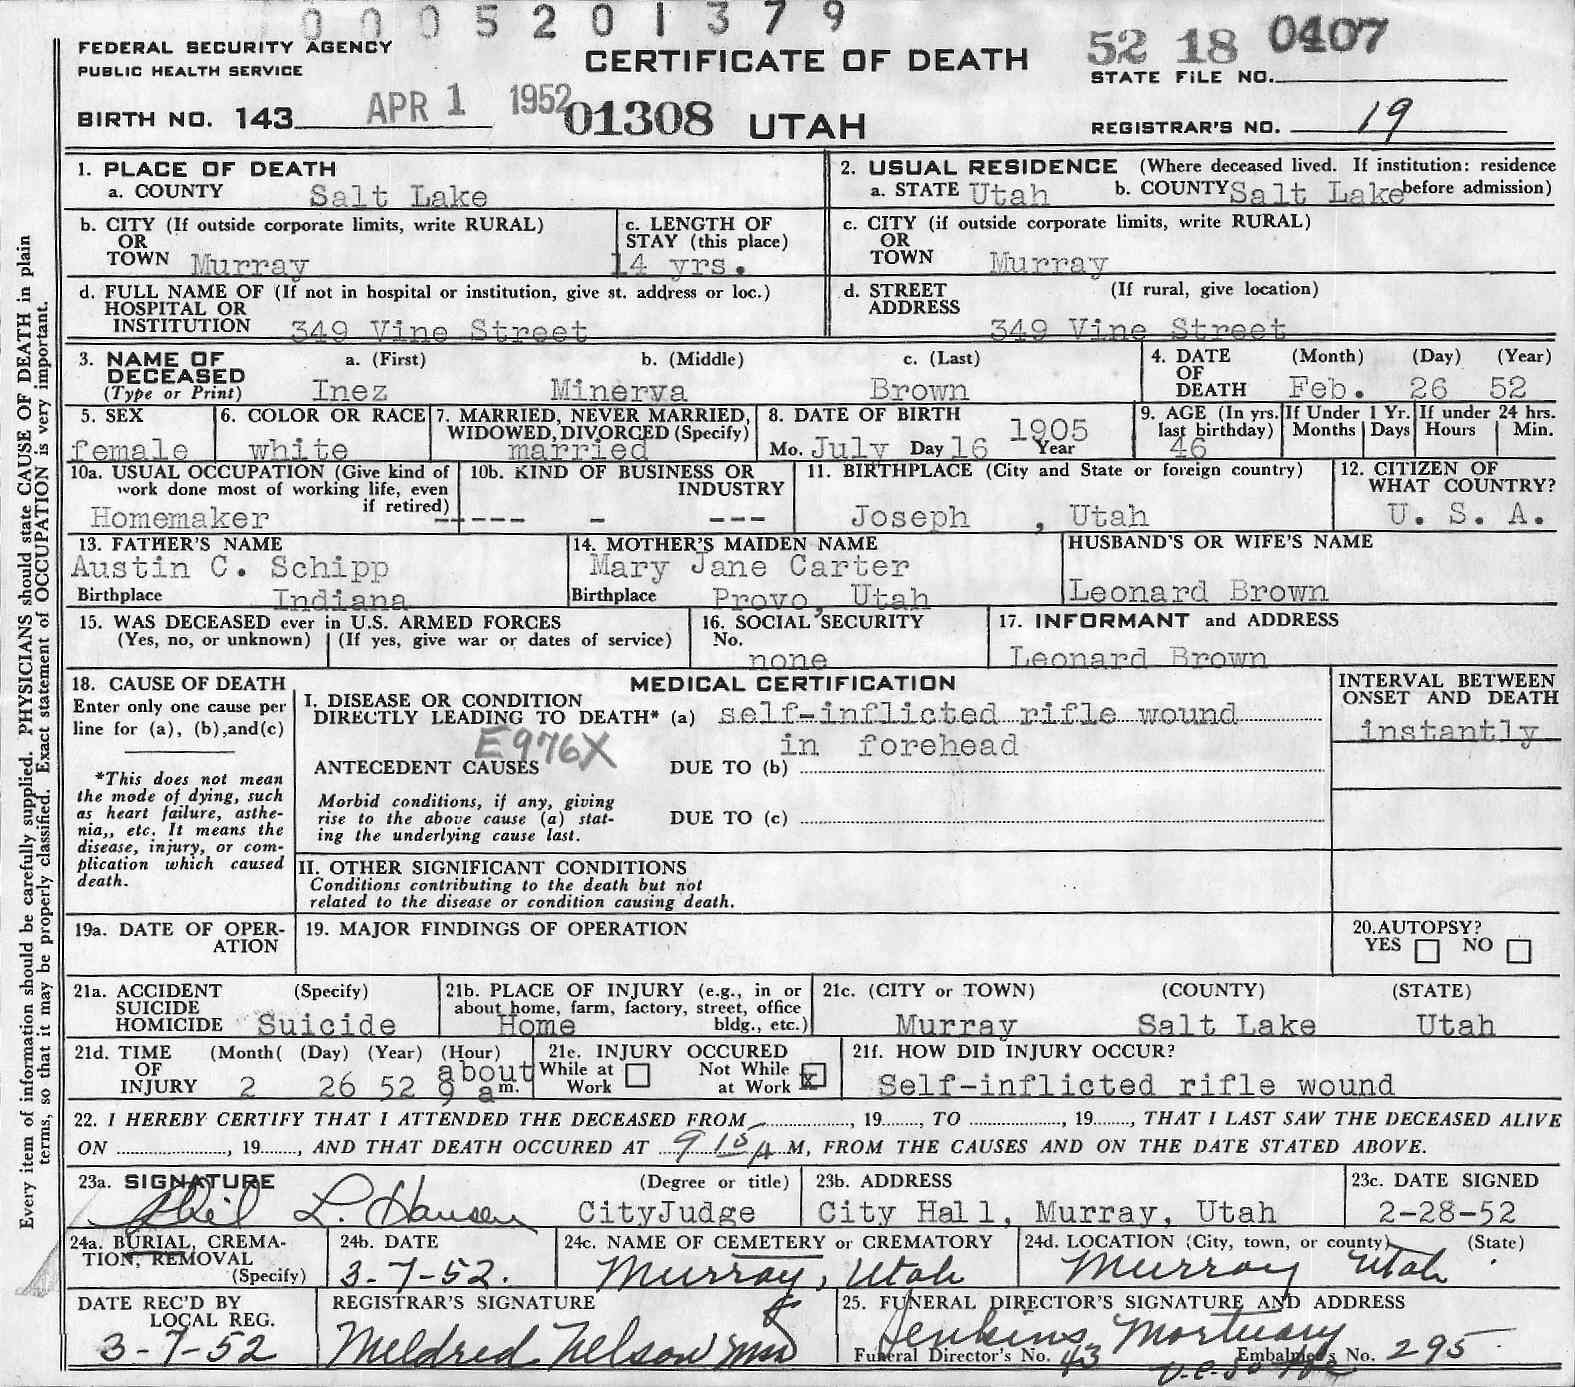 0 0 0 5 2 0 1 3 7 9
FEDERAL SECURITY AGENCY
PUBLIC HEALTH SERVICE
CERTIFICATE OF DEATH
52 18 0407
STATE FILE NO.
BIRTH NO. 143 APR 1 1952 01308 UTAH
REGISTRAR'S NO. 19
1. PLACE OF DEATH
a. COUNTY Salt Lake
2. USUAL RESIDENCE (Where deceased lived. If institution: residence before admission)
a. STATE Utah b. COUNTY Salt Lake
b. CITY (If outside corporate limits, write RURAL)
OR
TOWN Murray
c. LENGTH OF
STAY (this place)
14 yrs.
c. CITY (if outside corporate limits, write RURAL)
OR
TOWN Murray
d. FULL NAME OF (If not in hospital or institution, give st. address or loc.)
HOSPITAL OR
INSTITUTION 349 Vine Street
d. STREET (If rural, give location)
ADDRESS
349 Vine Street
3. NAME OF DECEASED (Type or Print)
a. (First) b. (Middle) c. (Last)
Inez Minerva Brown
4. DATE OF DEATH (Month) (Day) (Year)
Feb. 26 52
5. SEX
female
6. COLOR OR RACE
white
7. MARRIED, NEVER MARRIED,
WIDOWED, DIVORCED (Specify)
married
8. DATE OF BIRTH 1905
Mo. July Day 16 Year
9. AGE (In yrs. last birthday)
46
If Under 1 Yr.
Months Days
If under 24 hrs.
Hours Min.
10a. USUAL OCCUPATION (Give kind of
work done most of working life, even
if retired)
Homemaker
10b. KIND OF BUSINESS OR
INDUSTRY
----- - ---
11. BIRTHPLACE (City and State or foreign country)
Joseph , Utah
12. CITIZEN OF
WHAT COUNTRY?
U. S. A.
13. FATHER'S NAME
Austin C. Schipp
Birthplace Indiana
14. MOTHER'S MAIDEN NAME
Mary Jane Carter
Birthplace Provo, Utah
HUSBAND'S OR WIFE'S NAME
Leonard Brown
15. WAS DECEASED ever in U.S. ARMED FORCES
(Yes, no, or unknown) (If yes, give war or dates of service)
16. SOCIAL SECURITY
No.
none
17. INFORMANT and ADDRESS
Leonard Brown
18. CAUSE OF DEATH
Enter only one cause per
line for (a), (b),and(c)
*This does not mean
the mode of dying, such
as heart failure, asthe-
nia,, etc. It means the
disease, injury, or com-
plication which caused
death.
MEDICAL CERTIFICATION
I. DISEASE OR CONDITION
DIRECTLY LEADING TO DEATH* (a) self-inflicted rifle wound
in forehead
E976X
ANTECEDENT CAUSES DUE TO (b)
Morbid conditions, if any, giving
rise to the above cause (a) stat-
ing the underlying cause last.
DUE TO (c)
II. OTHER SIGNIFICANT CONDITIONS
Conditions contributing to the death but not
related to the disease or condition causing death.
INTERVAL BETWEEN
ONSET AND DEATH
instantly
19a. DATE OF OPER-
ATION
19. MAJOR FINDINGS OF OPERATION
20.AUTOPSY?
YES NO
21a. ACCIDENT (Specify)
SUICIDE
HOMICIDE Suicide
21b. PLACE OF INJURY (e.g., in or
about home, farm, factory, street, office
bldg., etc.)
Home
21c. (CITY or TOWN) (COUNTY) (STATE)
Murray Salt Lake Utah
21d. TIME OF INJURY (Month( (Day) (Year) (Hour)
2 26 52 about 9 am.
21e. INJURY OCCURED
While at Work Not While at Work x
21f. HOW DID INJURY OCCUR?
Self-inflicted rifle wound
22. I HEREBY CERTIFY THAT I ATTENDED THE DECEASED FROM , 19 , TO , 19 , THAT I LAST SAW THE DECEASED ALIVE
ON , 19 , AND THAT DEATH OCCURED AT 9 15 A M, FROM THE CAUSES AND ON THE DATE STATED ABOVE.
23a. SIGNATURE (Degree or title)
L. Hansen CityJudge
23b. ADDRESS
City Hall, Murray, Utah
23c. DATE SIGNED
2-28-52
24a. BURIAL, CREMA-
TION, REMOVAL
(Specify)
24b. DATE
3-7-52.
24c. NAME OF CEMETERY or CREMATORY
Murray, Utah
24d. LOCATION (City, town, or county) (State)
Murray Utah
DATE REC'D BY
LOCAL REG.
3-7-52
REGISTRAR'S SIGNATURE
Mildred Nelson
25. FUNERAL DIRECTOR'S SIGNATURE AND ADDRESS
Jenkins Mortuary
Funeral Director's No. 43 Embalmer's No. 295
Every item of information should be carefully supplied. PHYSICIANS should state CAUSE OF DEATH in plain
terms, so that it may be properly classified. Exact statement of OCCUPATION is very important.